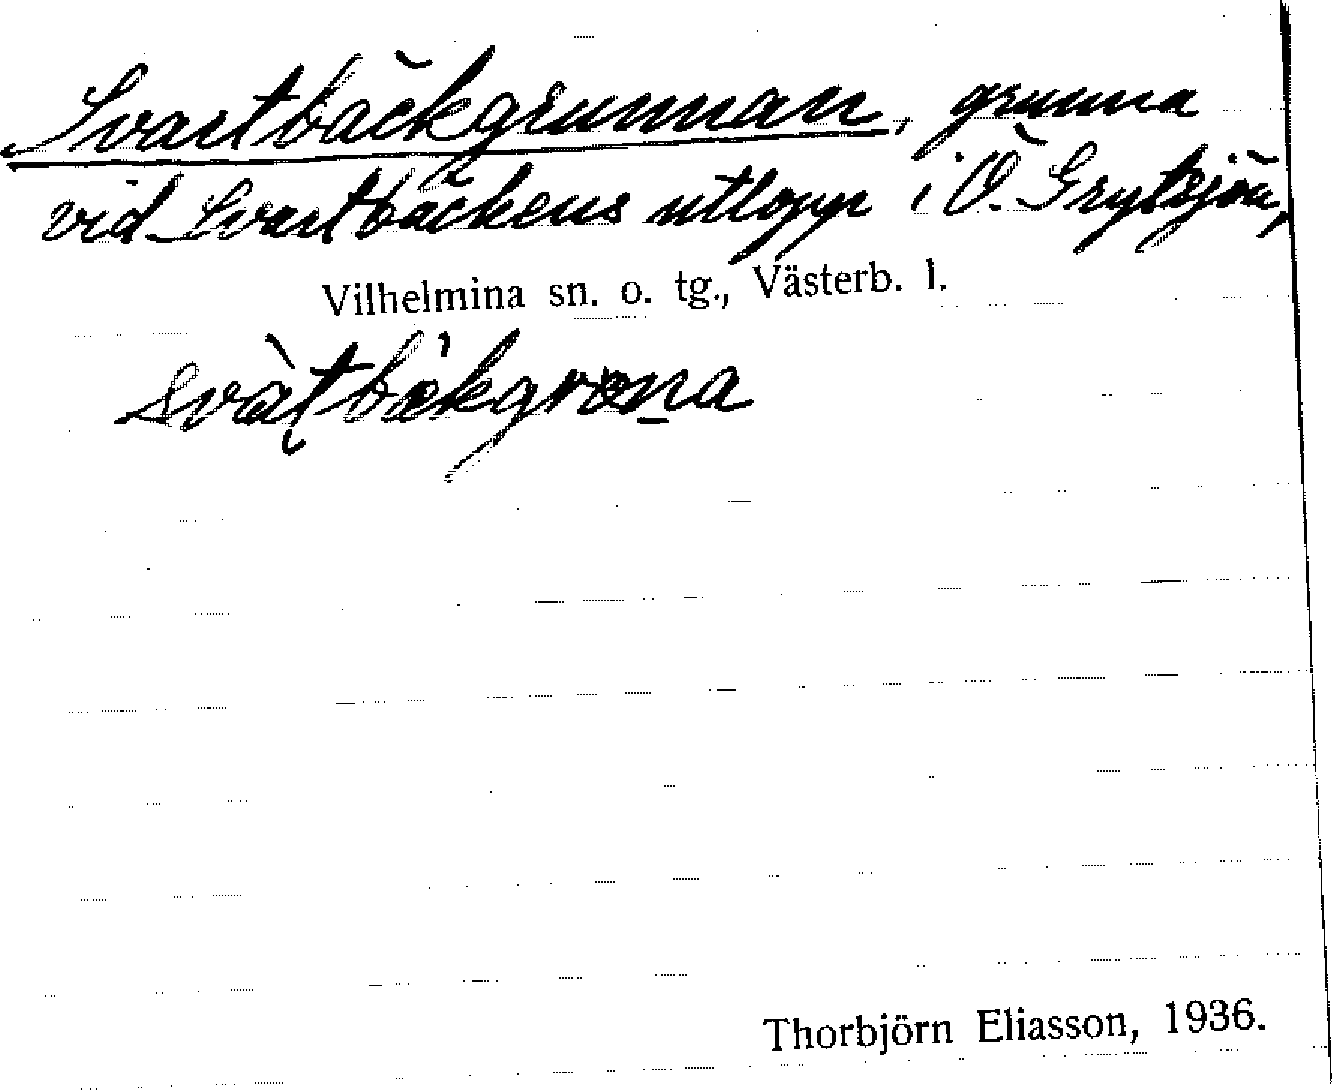 Svartbäckgrunnan, grunna
vid Svartbäckens utlopp i Ö. Grytsjön,
Vilhelmina sn. o. tg., Västerb. l.
svàt̨bækgrona
Thorbjörn Eliasson, 1936.